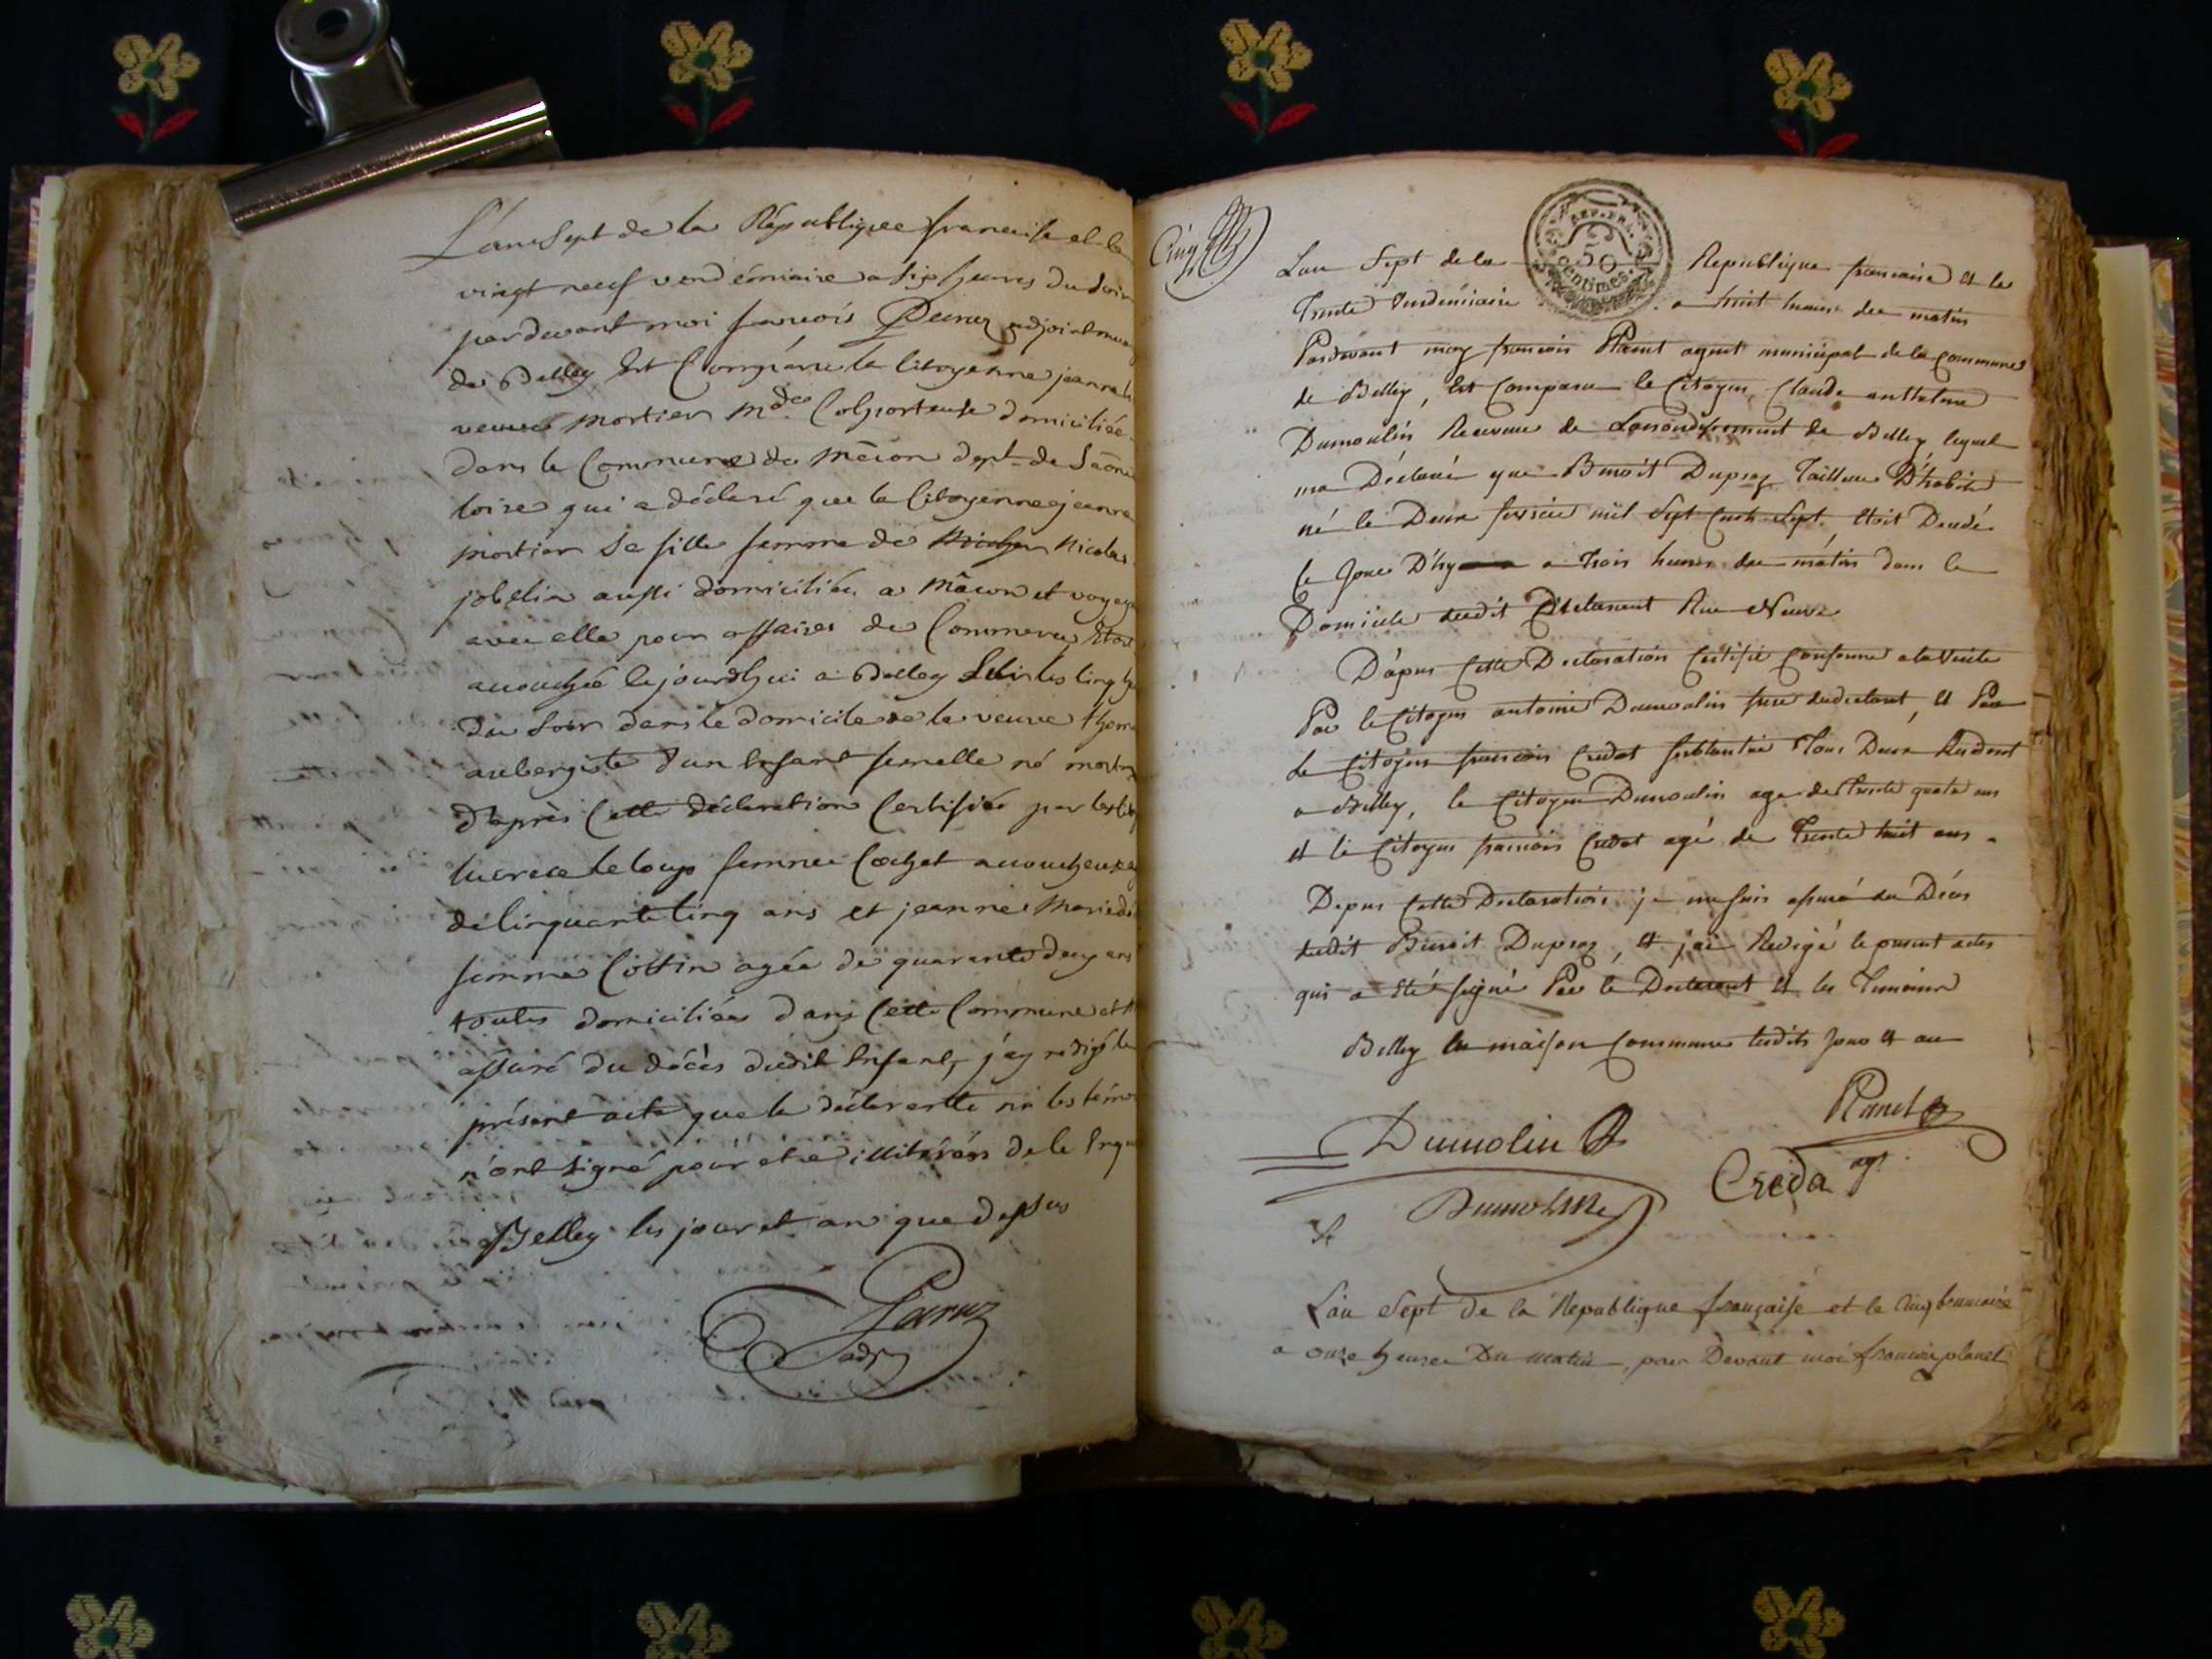 L'an Sept de la République francaise et le
vingt neuf vendémiaire a six heures du soir
pardevant moi francois Parnz adjoint mu
de Belley Est Comparue la Citoyenne jeanne
veuve mortier mde Colporteuse domiciliée
dans la Commune de mâcon dept de Saône
loire qui a déclaré que la Citoyenne jeanne
mortier sa fille femme de Nicolas
jobelin aussi domiciliée a mâcon et voyage
avec elle pour affaires de Commerce Etoit
accouchée le jourdhui a Belley les cinq h
du soir dans le domicile de la veuve
aubergiste d'un Enfant femelle né mort
d'après Cette déclaration Certifiée par les
lucrece leloup femme Cochet accoucheuse
de Cinquante Cinq ans et jeanne Marie
femme Cottin agée de quarante deux ans
toutes domiciliées dans Cette Commune et
assuré du décès dudit Enfant, j'ay redigé le
présent acte que la déclarante ni les témo
n'ont signé pour etre illitérées de le
Belley les jour et an que dessus
Parnz
adj
Cinq
REP. FRA.
50
centimes
Lan Sept de la Republique francaise et le
Trente Vendemiaire a huit heures du matin
Pardevant moy francois Planet agent municipal de la Commune
de Belley, Est Comparu le Citoyen Claude anthelme
Dumoulin Receveur de Larondissement de Belley lequel
ma Déclaré que Benoit Dupraz Tailleur D'habits
né le Deux mil Sept Cent Sept Etoit Decedé
Ce Jour D'hy a trois heures du matin dans le
Domicile dudit Déclarant Rue Neuve
D'apres Cette Declaration Certifié Conforme a la Verité
Par le Citoyen antoine Dumoulin frere dudeclarant, et Par
le Citoyen francois Credat ferblantier Tous Deux Residents
a Belley, le Citoyen Dumoulin age de Trente quatre ans
et le Citoyen francois Credat agé de Trente huit ans.
Depres Cette Declaration je me suis assuré du Déces
dudit Benoit Dupraz, et jai Redigé le present acte
qui a Eté signé Par le Declarant et les Temoins
Belley En maison Commune lesdits Jour et an
Dumolin
Planet
agt
Creda
Dumolin
L'an Sept de la Republique française et le Cinq brumaire
a onze heures Du matin, par Devant moi francois planet